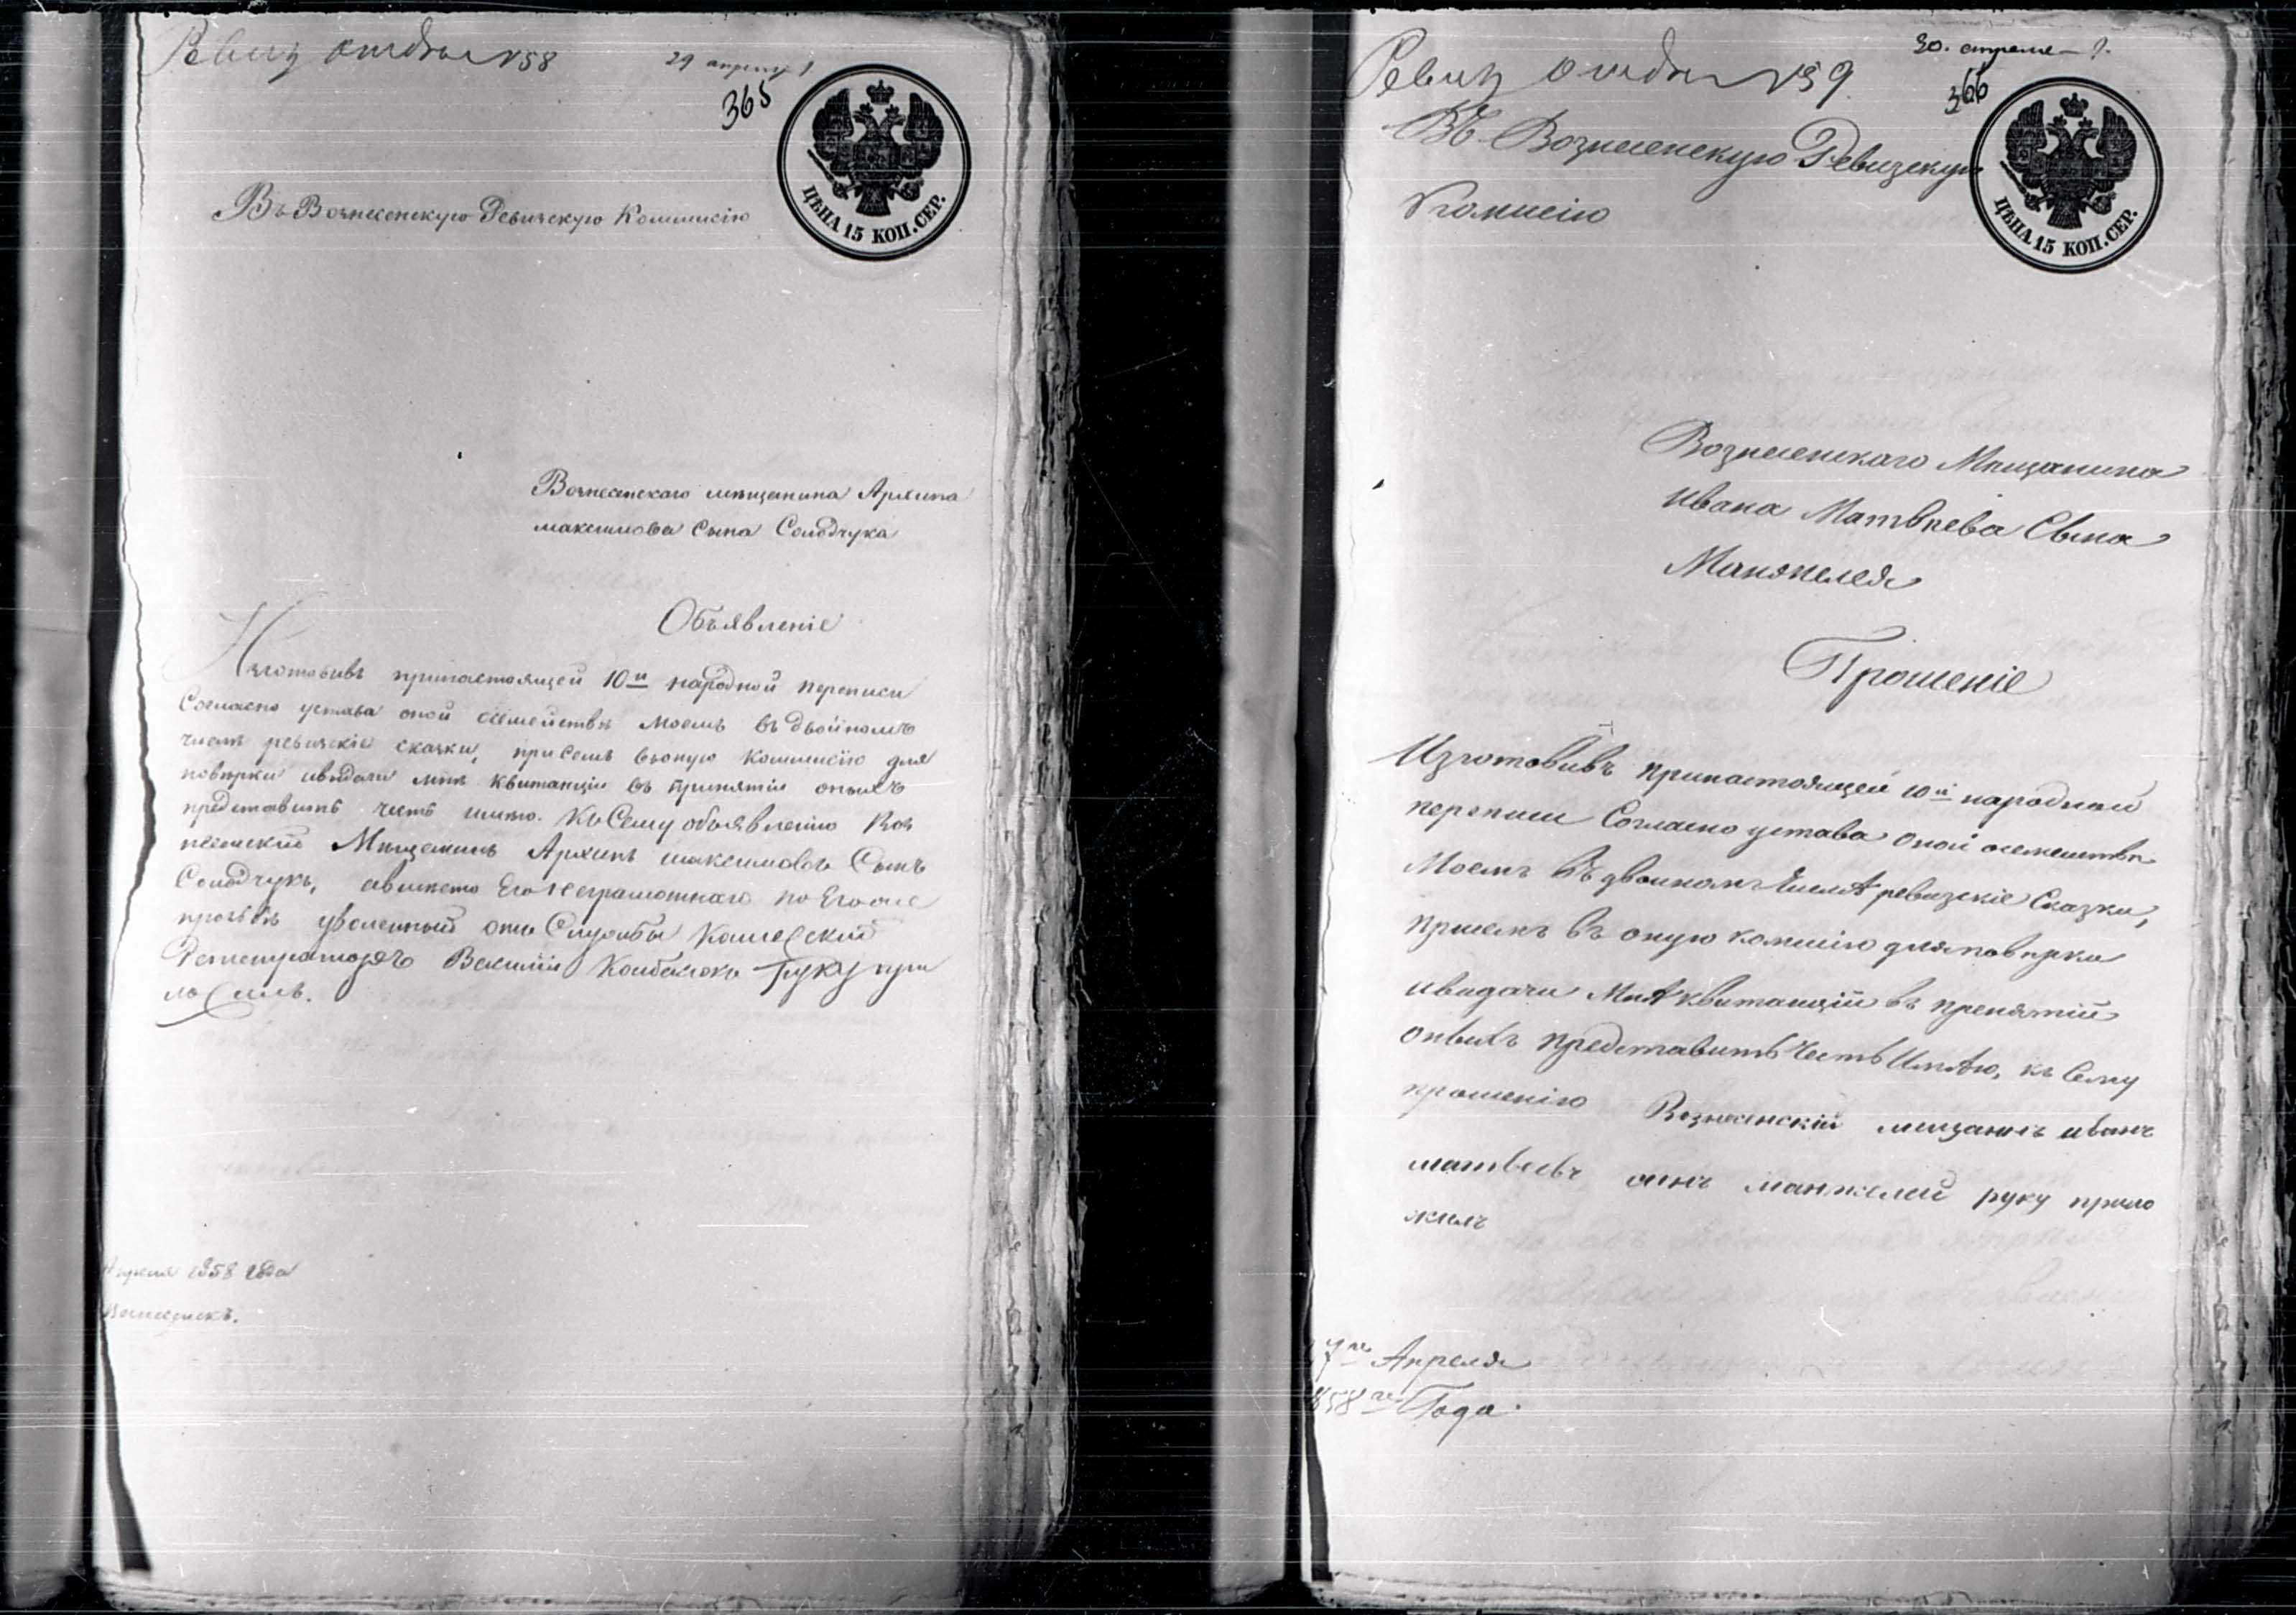 Ревиз отдел N58
29 апреля
365
ЦѢНА 15 КОП. СЕР.
Въ Вознесенскую Ревизскую Коммисію
Вознесенскаго мѣщанина Архипа
максимова Сына Солодчука
Объявленіе
Изготовивъ принастоящей 10й народной переписи
Согласно устава оной осемействѣ моемъ въ двойномъ
числѣ ревизскіе сказки, присемъ вьоную Коммисію для
повѣрки ивыдачи мнѣ квитанціи въ принятіи оныхъ
представить честь имѣю. Къ Сему объявленію Воз
несенскій Мѣщанинъ Архипъ максимовъ Сынъ
Солодчукъ, авмѣсто Его неграмотнаго по Его
прозьбѣ уволенный отъ Службы Колежский
Регистраторъ Василій руку при
ложилъ.
Апреля 1858 года
Вознесенскъ.
Ревиз отдел N59
30. апреля
366
ЦѢНА 15 КОП. СЕР.
Въ Вознесенскую Ревизскую
Комисію
Вознесенскаго Мѣщанина
Ивана Матвѣева Сына
Манжелея
Прошеніе
Изготовивъ принастоящей 10й народной
переписи Согласно устава оной осемействѣ
Моемъ въ двоиномъ числѣ ревизскіе Сказки,
присемъ въ оную комисію дляповѣрки
ивидачи Мнѣ квитанціи въ пренятіи
оныхъ представить Честь Имѣю, къ Сему
прошенію Вознесенскій мещанинъ иванъ
матвеевъ синъ манжелей руку прило
жилъ
27го Апреля
1858го Года.